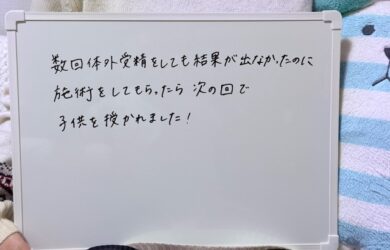 数回体外受精をしても結果が出なかったのに
施術をしてもらったら次の回で
子供を授かれました！